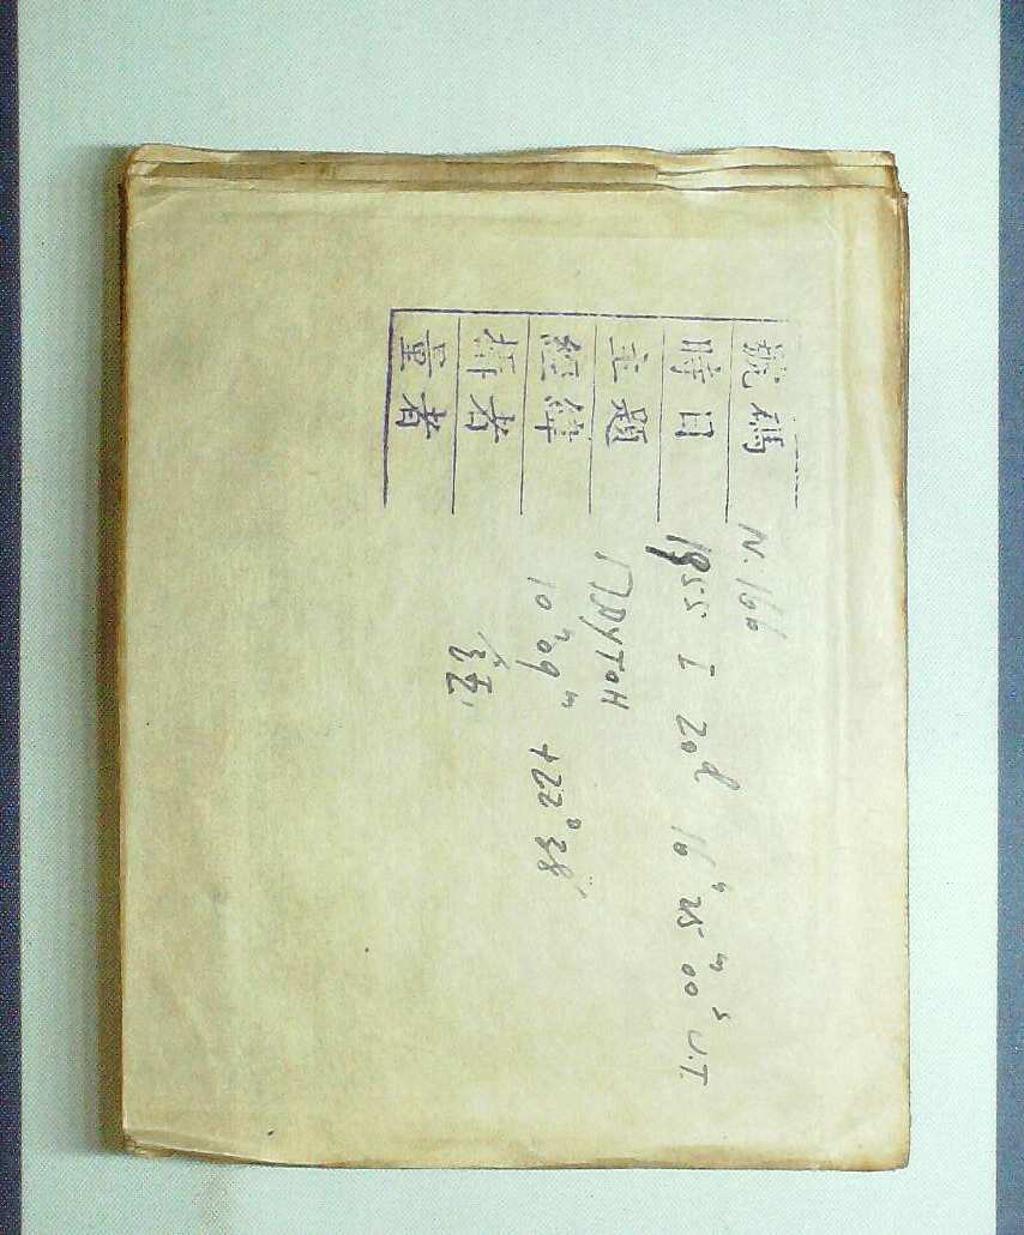 號碼 N. 166
時日 1955 I 20d 16h 25m 00s U.T.
主題 Плутон
經緯 10h 09m +22° 38′
者
量者